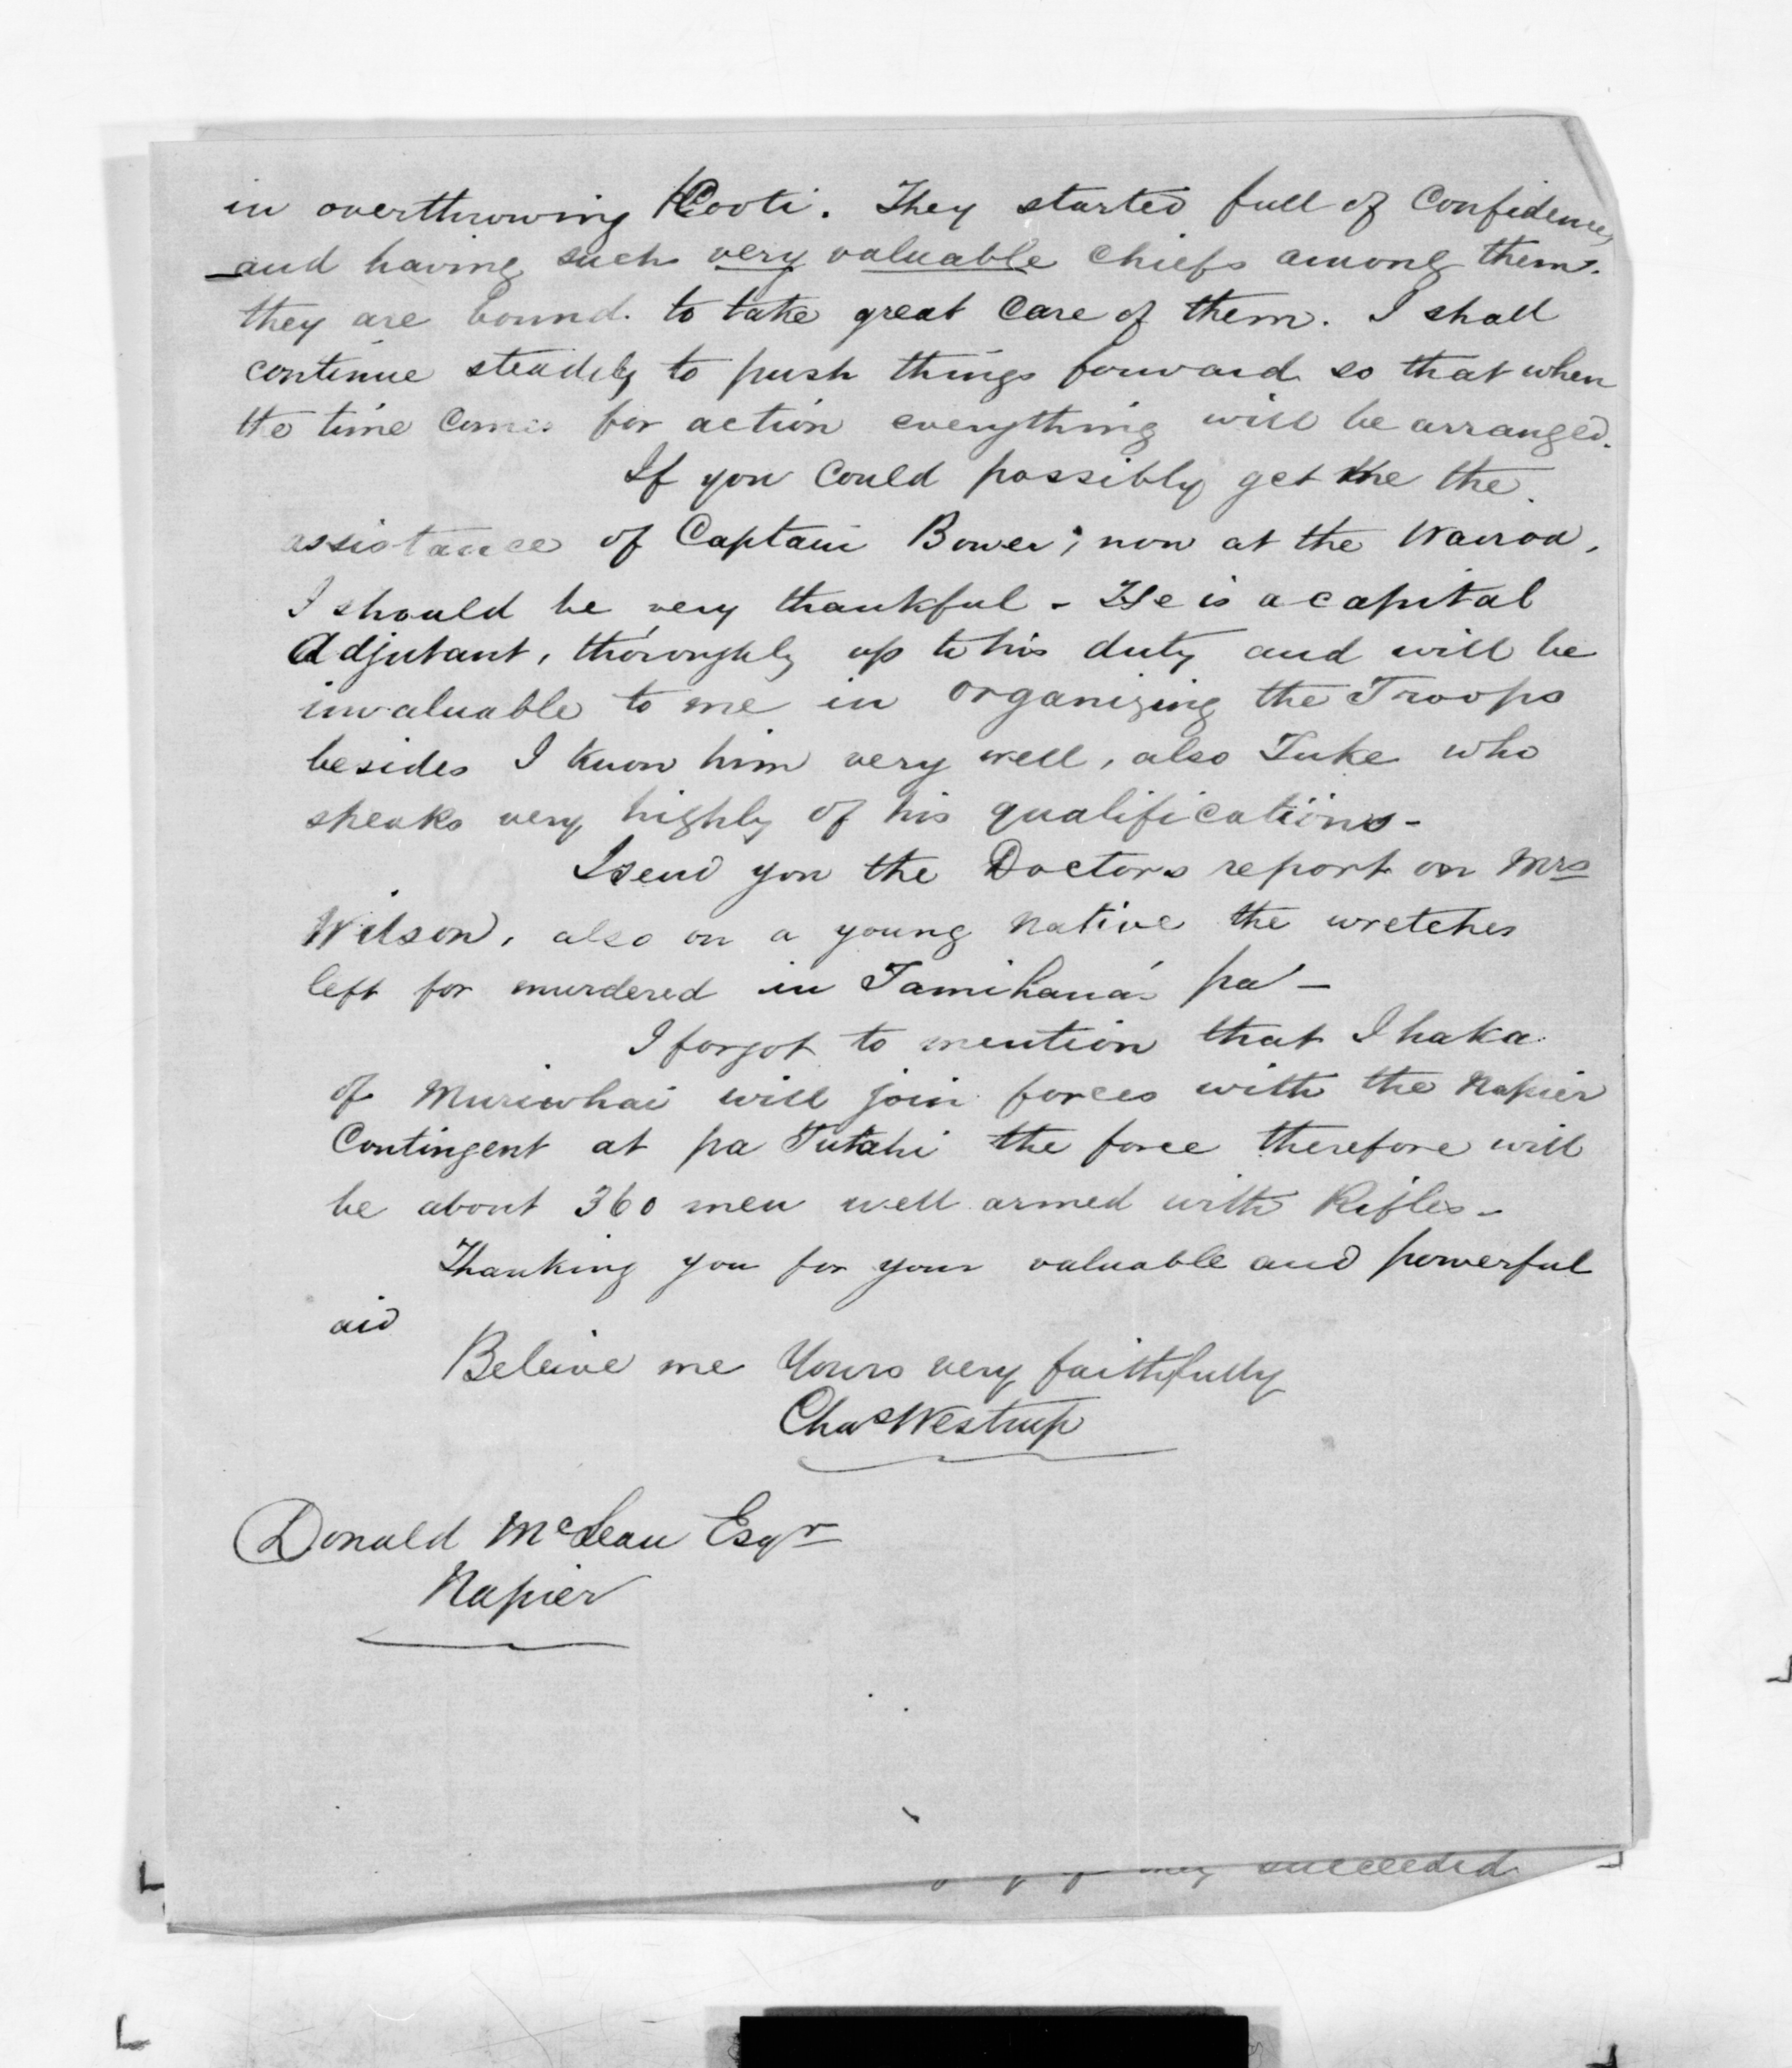 in overthrowing Kooti. They started full of Confidence,
and having such very valuable Chiefs among them.
they are bound to take great Care of them. I shall
continue steadily to push things forward so that when
the time comes for action everything will be arranged.
If you Could possibly get the the
assistance of Captain Bower; now at the Wairoa,
I should be very thankful - He is a capital
Adjutant, thoroughly up to his duty and will be
invaluable to me in organizing the Troops
besides I know him very well, also Tuke who
speaks very highly of his qualifications -
I send you the Doctors report on Mrs
Wilson, also on a young native the wretches
left for murdered in Tamihana's pa -
I forgot to mention that Ihaka
of Muriwhai will join forces with the Napier
Contingent at pa Tutahi the force therefore will
be about 360 men well armed with Rifles -
Thanking you for your valuable and powerful
aid
Beleive me Yours very faithfully
Chas Westrup
Donald McLean Esqr
Napier
succeeded